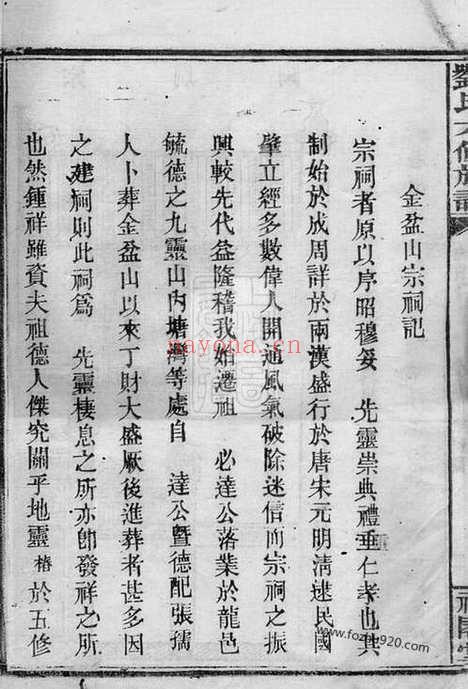 金盆山宗祠記
宗祠者原以序昭穆妥 先靈崇典禮垂仁孝也其
制始於成周詳於兩漢盛行於唐宋元明清逮民國
肇立經多數偉人開通風氣破除迷信而宗祠之振
興較先代益隆稽我始遷祖 必達公落業於龍邑
毓德之九靈山內塘灣等處自 達公暨德配張孺
人卜葬金盆山以來丁財大盛厥後進葬者甚多因
之建祠則此祠爲 先靈棲息之所亦卽發祥之所
也然鍾祥雖資夫祖德人傑究關乎地靈 椿 於五修
nayona.cn
www.fozu920.com